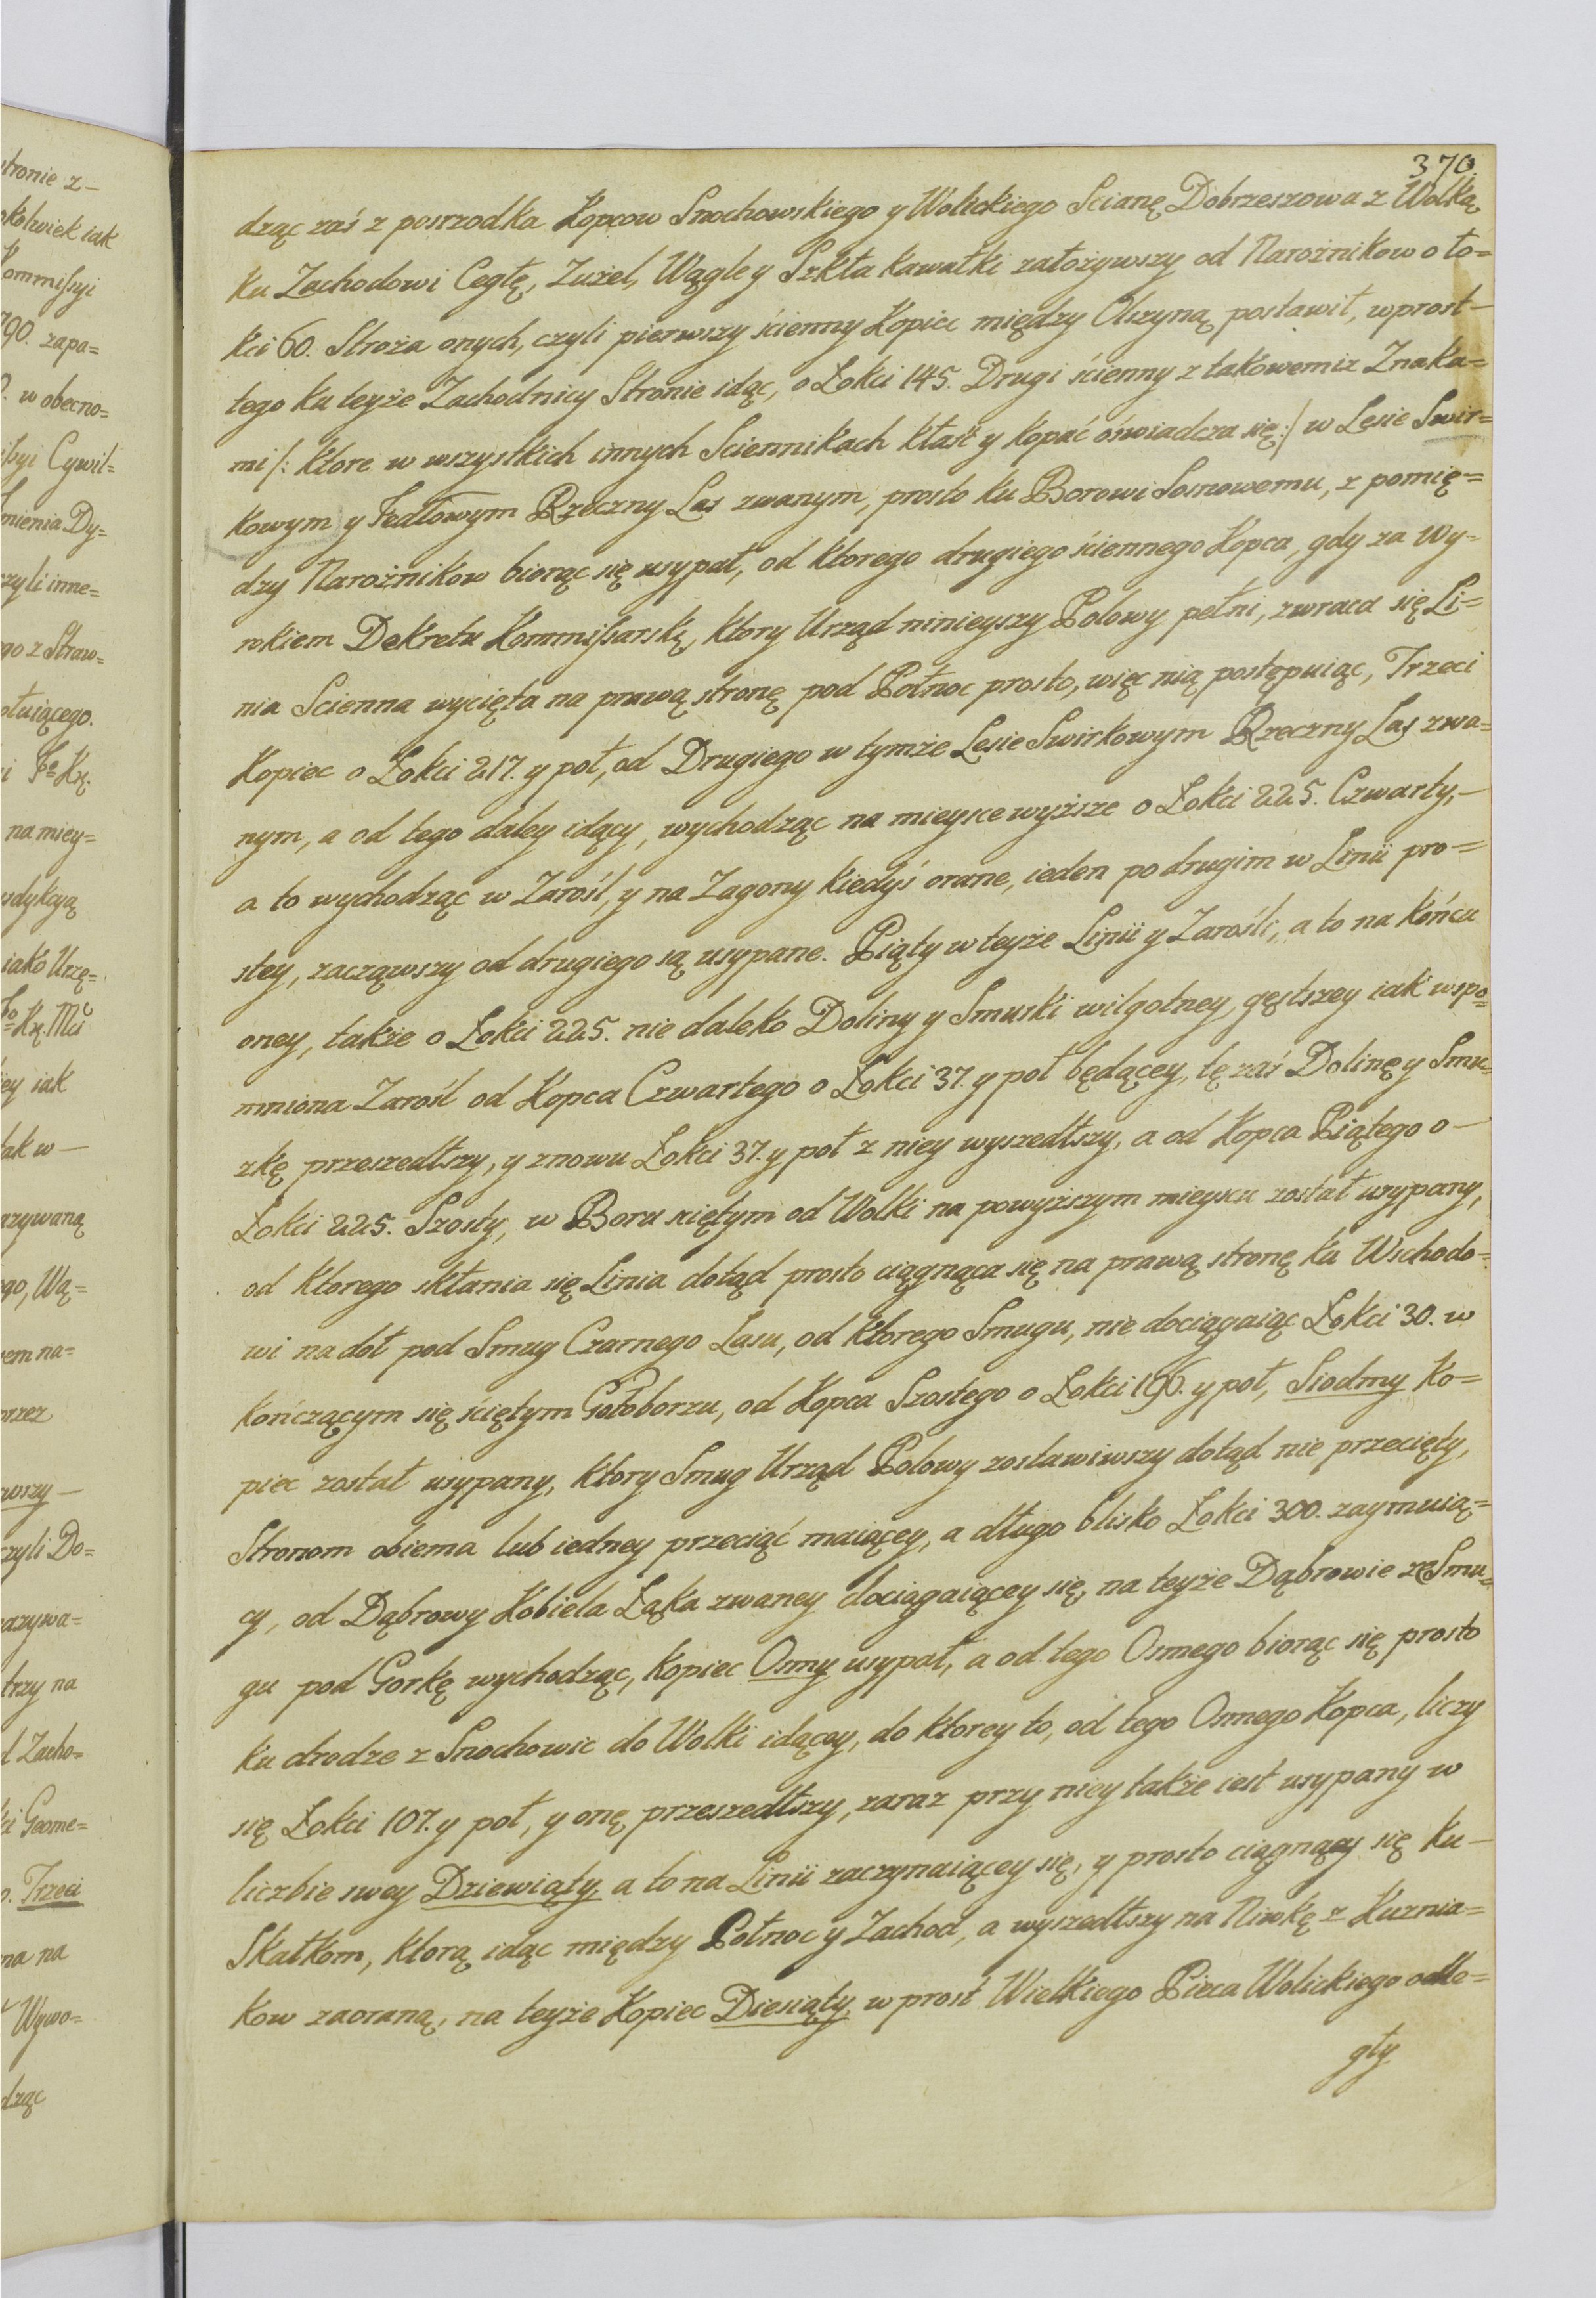 tronie z —
okolwiek iak
Kommissyi
790. zapa=
w obecno=
issyi Cywil=
mienia Dy=
czyli inne=
go z Straw=
otuiącego.
na miey=
sdykcyą
iako Urzę=
Kx. Mci
iey iak
tak w —
azywaną
go, Wą=
em na=
przez
wszy —
czyli Do=
azywa=
trzy na
d Zacho=
ci Geome=
o. Trzeci
na na
Wywo=
dząc
370.
dząc zaś z posrzodka Kopcow Snochowskiego y Wolickiego Scianę Dobrzeszowa z Wolką
ku Zachodowi Cegłę, Zużel, Wągle y Szkła kawałki założywszy od Narożnikow o ło=
kci 60. Stroża onych, czyli pierwszy ścienny Kopiec między Olszyną postawił, wprost —
tego ku teyże Zachodnicy Stronie idąc, o Łokci 145. Drugi ścienny z takowemiż Znaka=
mi /: ktore w wszystkich innych Sciennikach kłaść y kopać oświadcza się :/ w Lesie Swir=
kowym y Jedłowym Rzeczny Las zwanym, prosto ku Borowi Sosnowemu, z pomię=
dzy Narożników biorąc się usypał, od ktorego drugiego ściennego Kopca, gdy za Wy=
rokiem Dekretu Kommissarską, ktory Urząd ninieyszy Polowy pełni, zwraca się Li=
nia Scienna wycięta na prawą stronę pod Połnoc prosto, więc nią postępuiąc, Trzeci
Kopiec o Łokci 217. y poł, od Drugiego w tymże Lesie Swirkowym Rzeczny Las zwa=
nym, a od tego daley idący, wychodząc na mieysce wyższe o Łokci 225. Czwarty, —
a to wychodząc w Zarośl, y na Zagony kiedyś orane, ieden po drugim w Linii pro=
stey, zacząwszy od drugiego są usypane. Piąty w teyże Linii y Zarośli, a to na końcu
oney, także o Łokci 225. nie daleko Doliny y Smuski wilgotney, gęstszey iak wspo=
mniona Zarośl od Kopca Czwartego o Łokci 37. y poł będącey, tę zaś Dolinę y Smu=
zkę przeszedłszy, y znowu Łokci 37. y poł z niey wyszedłszy, a od Kopca Piątego o —
Łokci 225. Szosty, w Boru sciętym od Wolki na powyższym mieyscu został usypany,
od ktorego skłania się Linia dotąd prosto ciągnąca się na prawą stronę ku Wschodo=
wi na doł pod Smug Czarnego Lasu, od ktorego Smugu, nie dociągaiąc Łokci 30. w
kończącym się ściętym Gołoborzu, od Kopca Szostego o Łokci 196. y poł, Siodmy Ko=
piec został usypany, ktory Smug Urząd Polowy zostawiwszy dotąd nie przecięty,
Stronom obiema lub iedney przeciąć maiącey, a długo blisko Łokci 300. zaymuią=
cy, od Dąbrowy Kobiela Łąka zwaney dociągaiącey się, na teyże Dąbrowie ze Smu=
gu pod Gorkę wychodząc, Kopiec Osmy usypał, a od tego Osmego biorąc się prosto
ku drodze z Snochowic do Wolki idącey, do ktorey to, od tego Osmego Kopca, liczy
się Łokci 107. y poł, y onę przeszedłszy, zaraz przy niey także iest usypany w
liczbie swey Dziewiąty, a to na Linii zaczynaiącey się, y prosto ciągnący się ku —
Skałkom, ktorą idąc między Połnoc y Zachod, a wyszedłszy na Niwkę z Kuznia=
kow zaoraną, na teyże Kopiec Diesiąty, w prost Wielkiego Pieca Wolickiego odle=
gły